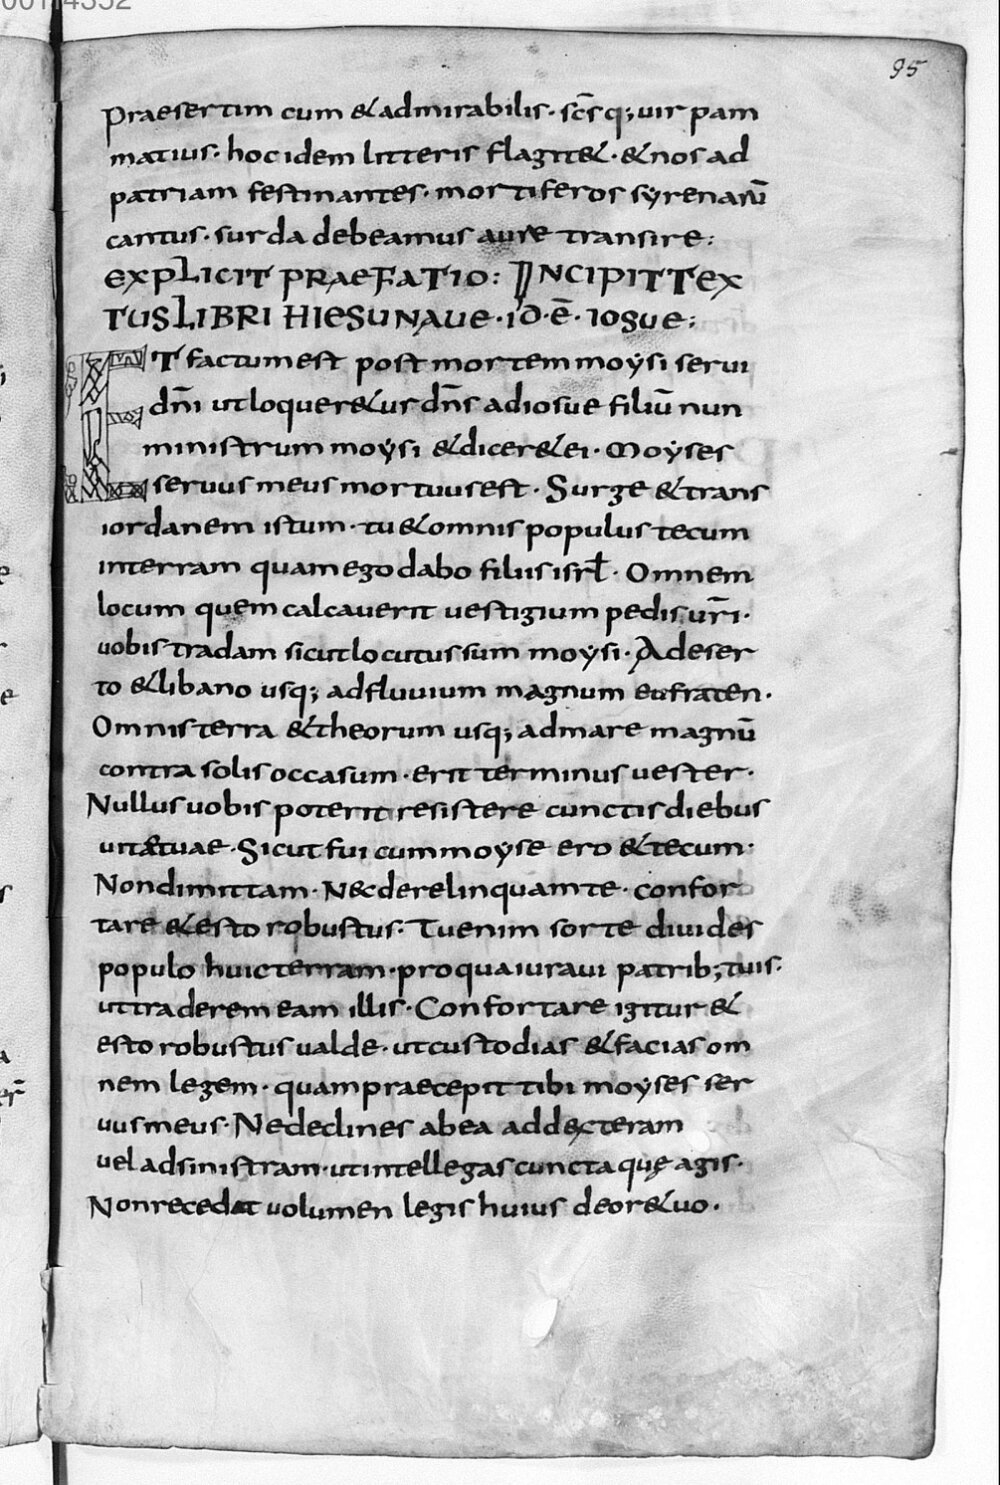 95
praesertim cum &admirabilis · sc̄sq; uir pam
matius · hoc idem litteris flagit& · &nos ad
patriam festinantes · mortiferos syrenarū
cantus · surda debeamus aure transire:
EXPLICIT PRAEFATIO: INCIPIT TEX
TUS LIBRI HIESU NAUE · ID · Ē · IOSUE:
ET factum est post mortem moysi serui
dn̄i ut loquer&ur dn̄s ad iosue filiū nun
ministrum moysi &dicer& ei · Moyses
seruus meus mortuus est · Surge &trans
iordanem istum · tu &omnis populus tecum
in terram quam ego dabo filiis isrł · Omnem
locum quem calcauerit uestigium pedis ur̄i ·
uobis tradam sicut locutus sum moysi · A deser
to &libano usq; ad fluuium magnum eufraten ·
Omnis terra &theorum usq; ad mare magnū
contra solis occasum · erit terminus uester ·
Nullus uobis poterit resistere cunctis diebus
uitæ tuae · Sicut fui cum moyse ero &tecum ·
Non dimittam · Nec derelinquam te · confor
tare &esto robustus · Tu enim sorte diuides
populo huic terram · pro qua iuraui patrib; tuis ·
ut traderem eam illis · Confortare igitur &
esto robustus ualde · ut custodias &facias om
nem legem · quam praecepit tibi moyses ser
uus meus · Ne declines ab ea ad dexteram
uel ad sinistram · ut intellegas cuncta quę agis ·
Non recedat uolumen legis huius de ore &uo ·